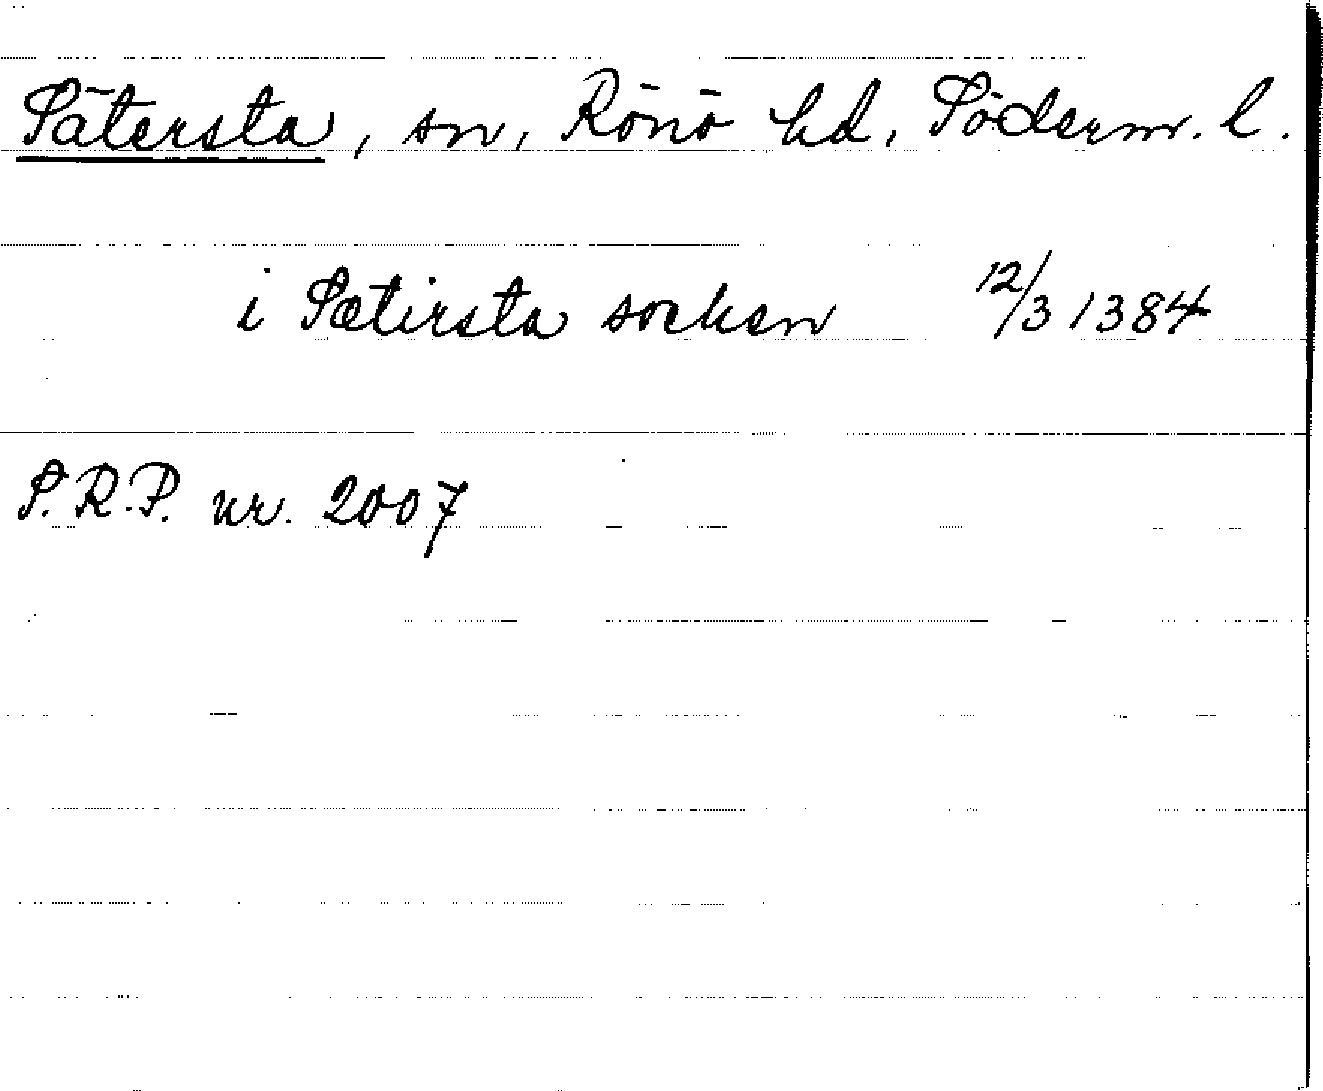 Sätersta, sn, Rönö hd, Söderm. l.
i Sætirsta socken 12/3 1384
S.R.P. nr. 2007